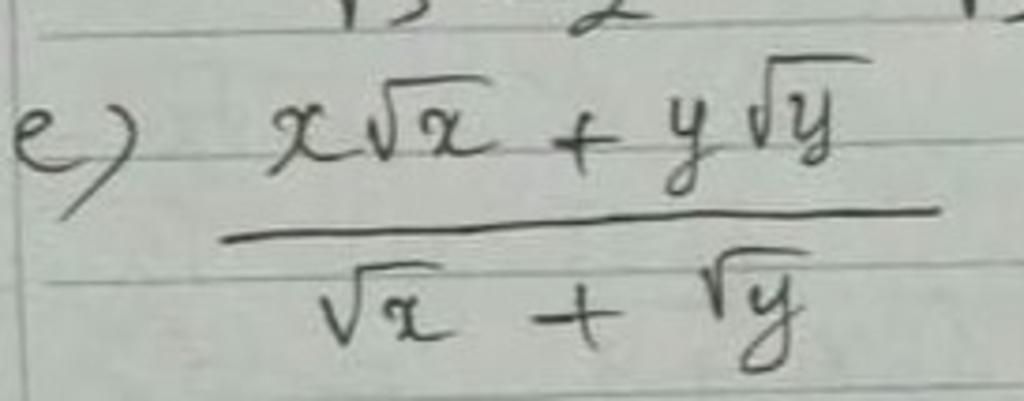 e) x√x + y√y
√x + √y